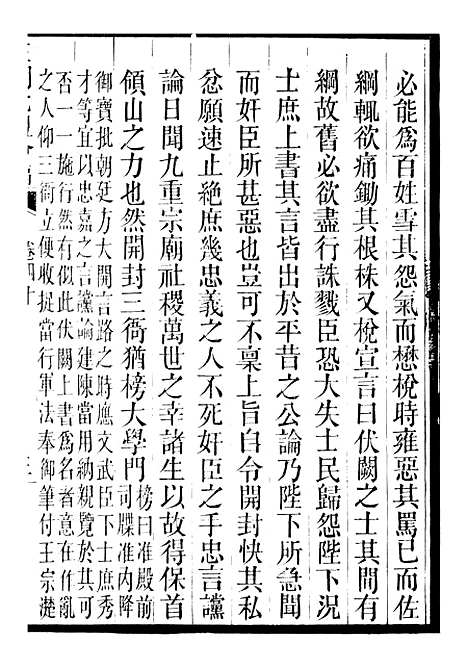 必能爲百姓雪其怨氣而懋梲時雍惡其罵已而佐
綱輒欲痛鋤其根株又梲宣言曰伏闕之士其間有
綱故舊必欲盡行誅戮臣恐大失士民歸怨陛下况
士庶上書其言皆出於平昔之公論乃陛下所急聞
而奸臣所甚惡也豈可不稟上旨白令開封快其私
忿願速止絶庶幾忠義之人不死奸臣之手忠言讜
論日聞九重宗廟社稷萬世之幸諸生以故得保首
領山之力也然開封三衙猶榜大學門
榜曰准殿前
司牒准内降
御寶批朝廷方大開言路之時應文武臣下士庶秀
才等宜以忠嘉之言讜論建陳當用納親覽於其可
否一一施行然有似此伏闕上書爲名者意在作亂
之人仰三衙立便收捉當行軍法奉御筆付王宗濋
卷四十